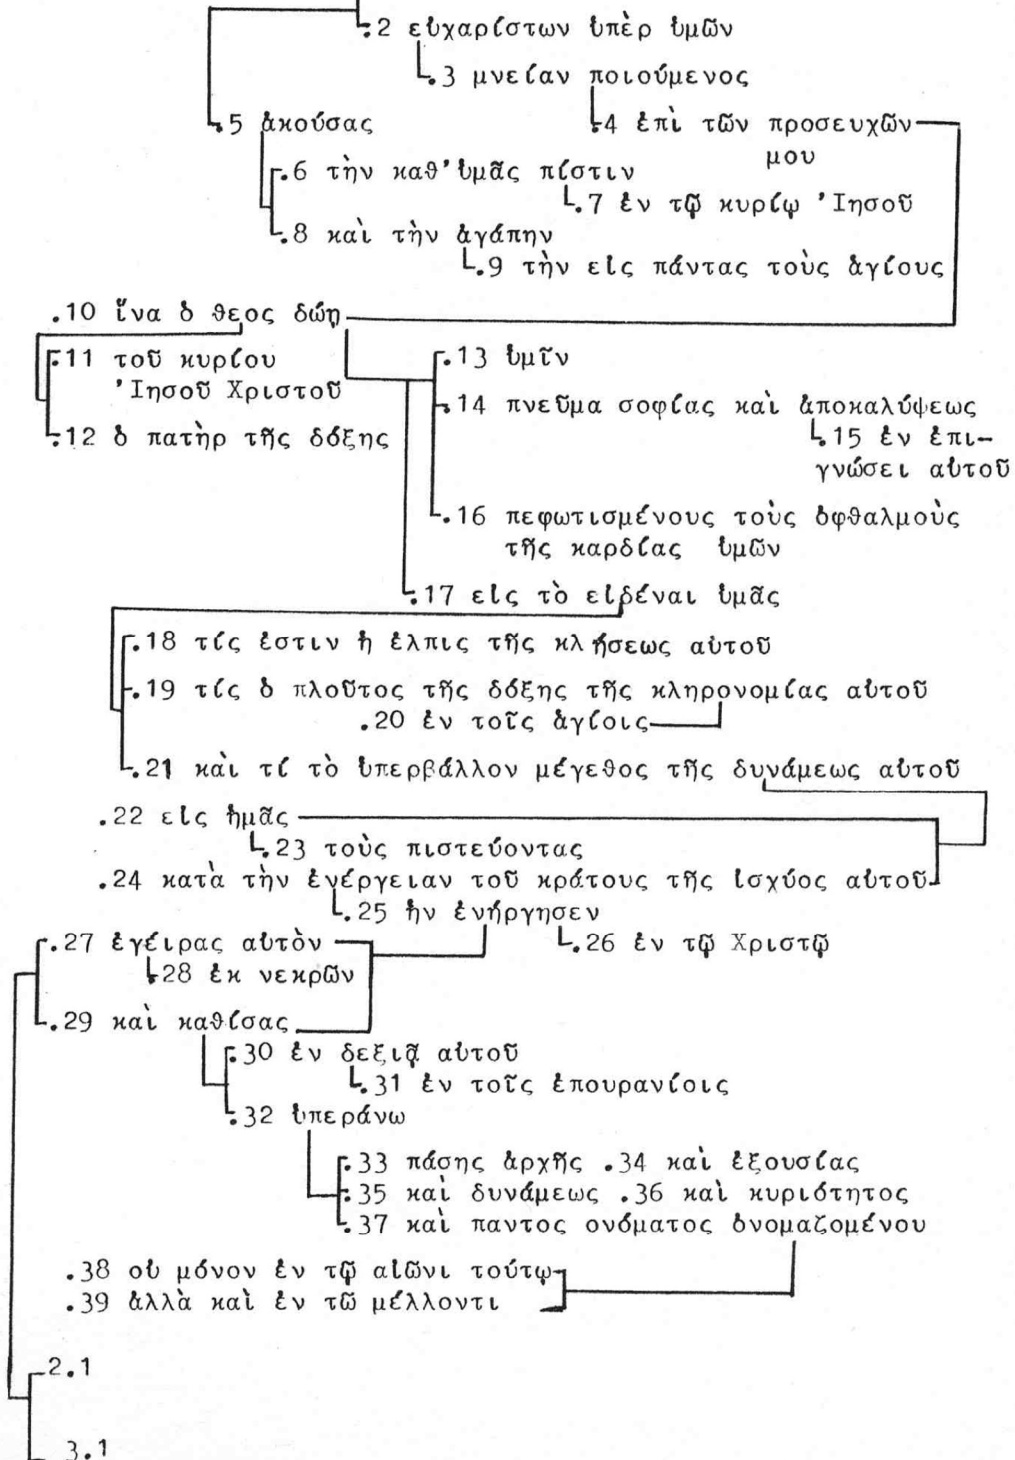 .2 εὐχαρίστων ὑπὲρ ὑμῶν
.3 μνείαν ποιούμενος
.5 ἀκούσας .4 ἐπὶ τῶν προσευχῶν
μου
.6 τὴν καθ’ὑμᾶς πίστιν
.7 ἐν τῷ κυρίῳ ’Ιησοῦ
.8 καὶ τὴν ἀγάπην
.9 τὴν εἰς πάντας τοὺς ἁγίους
.10 ἵνα ὁ θεος δώῃ
.11 τοῦ κυρίου
’Ιησοῦ Χριστοῦ
.12 ὁ πατὴρ τῆς δόξης
.13 ὑμῖν
.14 πνεῦμα σοφίας καὶ ἀποκαλύψεως
.15 ἐν ἐπι-
γνώσει αὐτοῦ
.16 πεφωτισμένους τοὺς ὀφθαλμοὺς
τῆς καρδίας ὑμῶν
.17 εἰς τὸ εἰδέναι ὑμᾶς
.18 τίς ἐστιν ἡ ἐλπις τῆς κλήσεως αὐτοῦ
.19 τίς ὁ πλοῦτος τῆς δόξης τῆς κληρονομίας αὐτοῦ
.20 ἐν τοῖς ἁγίοις
.21 καὶ τί τὸ ὑπερβάλλον μέγεθος τῆς δυνάμεως αὐτοῦ
.22 εἰς ἡμᾶς
.23 τοὺς πιστεύοντας
.24 κατὰ τὴν ἐνέργειαν τοῦ κράτους τῆς ἰσχύος αὐτοῦ
.25 ἣν ἐνήργησεν
.27 ἐγείρας αὐτὸν .26 ἐν τῷ Χριστῷ
.28 ἐκ νεκρῶν
.29 καὶ καθίσας
.30 ἐν δεξιᾷ αὐτοῦ
.31 ἐν τοῖς ἐπουρανίοις
.32 ὑπεράνω
.33 πάσης ἀρχῆς .34 καὶ ἐξουσίας
.35 καὶ δυνάμεως .36 καὶ κυριότητος
.37 καὶ παντος ονόματος ὀνομαζομένου
.38 οὐ μόνον ἐν τῷ αἰῶνι τούτῳ
.39 ἀλλὰ καὶ ἐν τῶ μέλλοντι
2.1
3.1